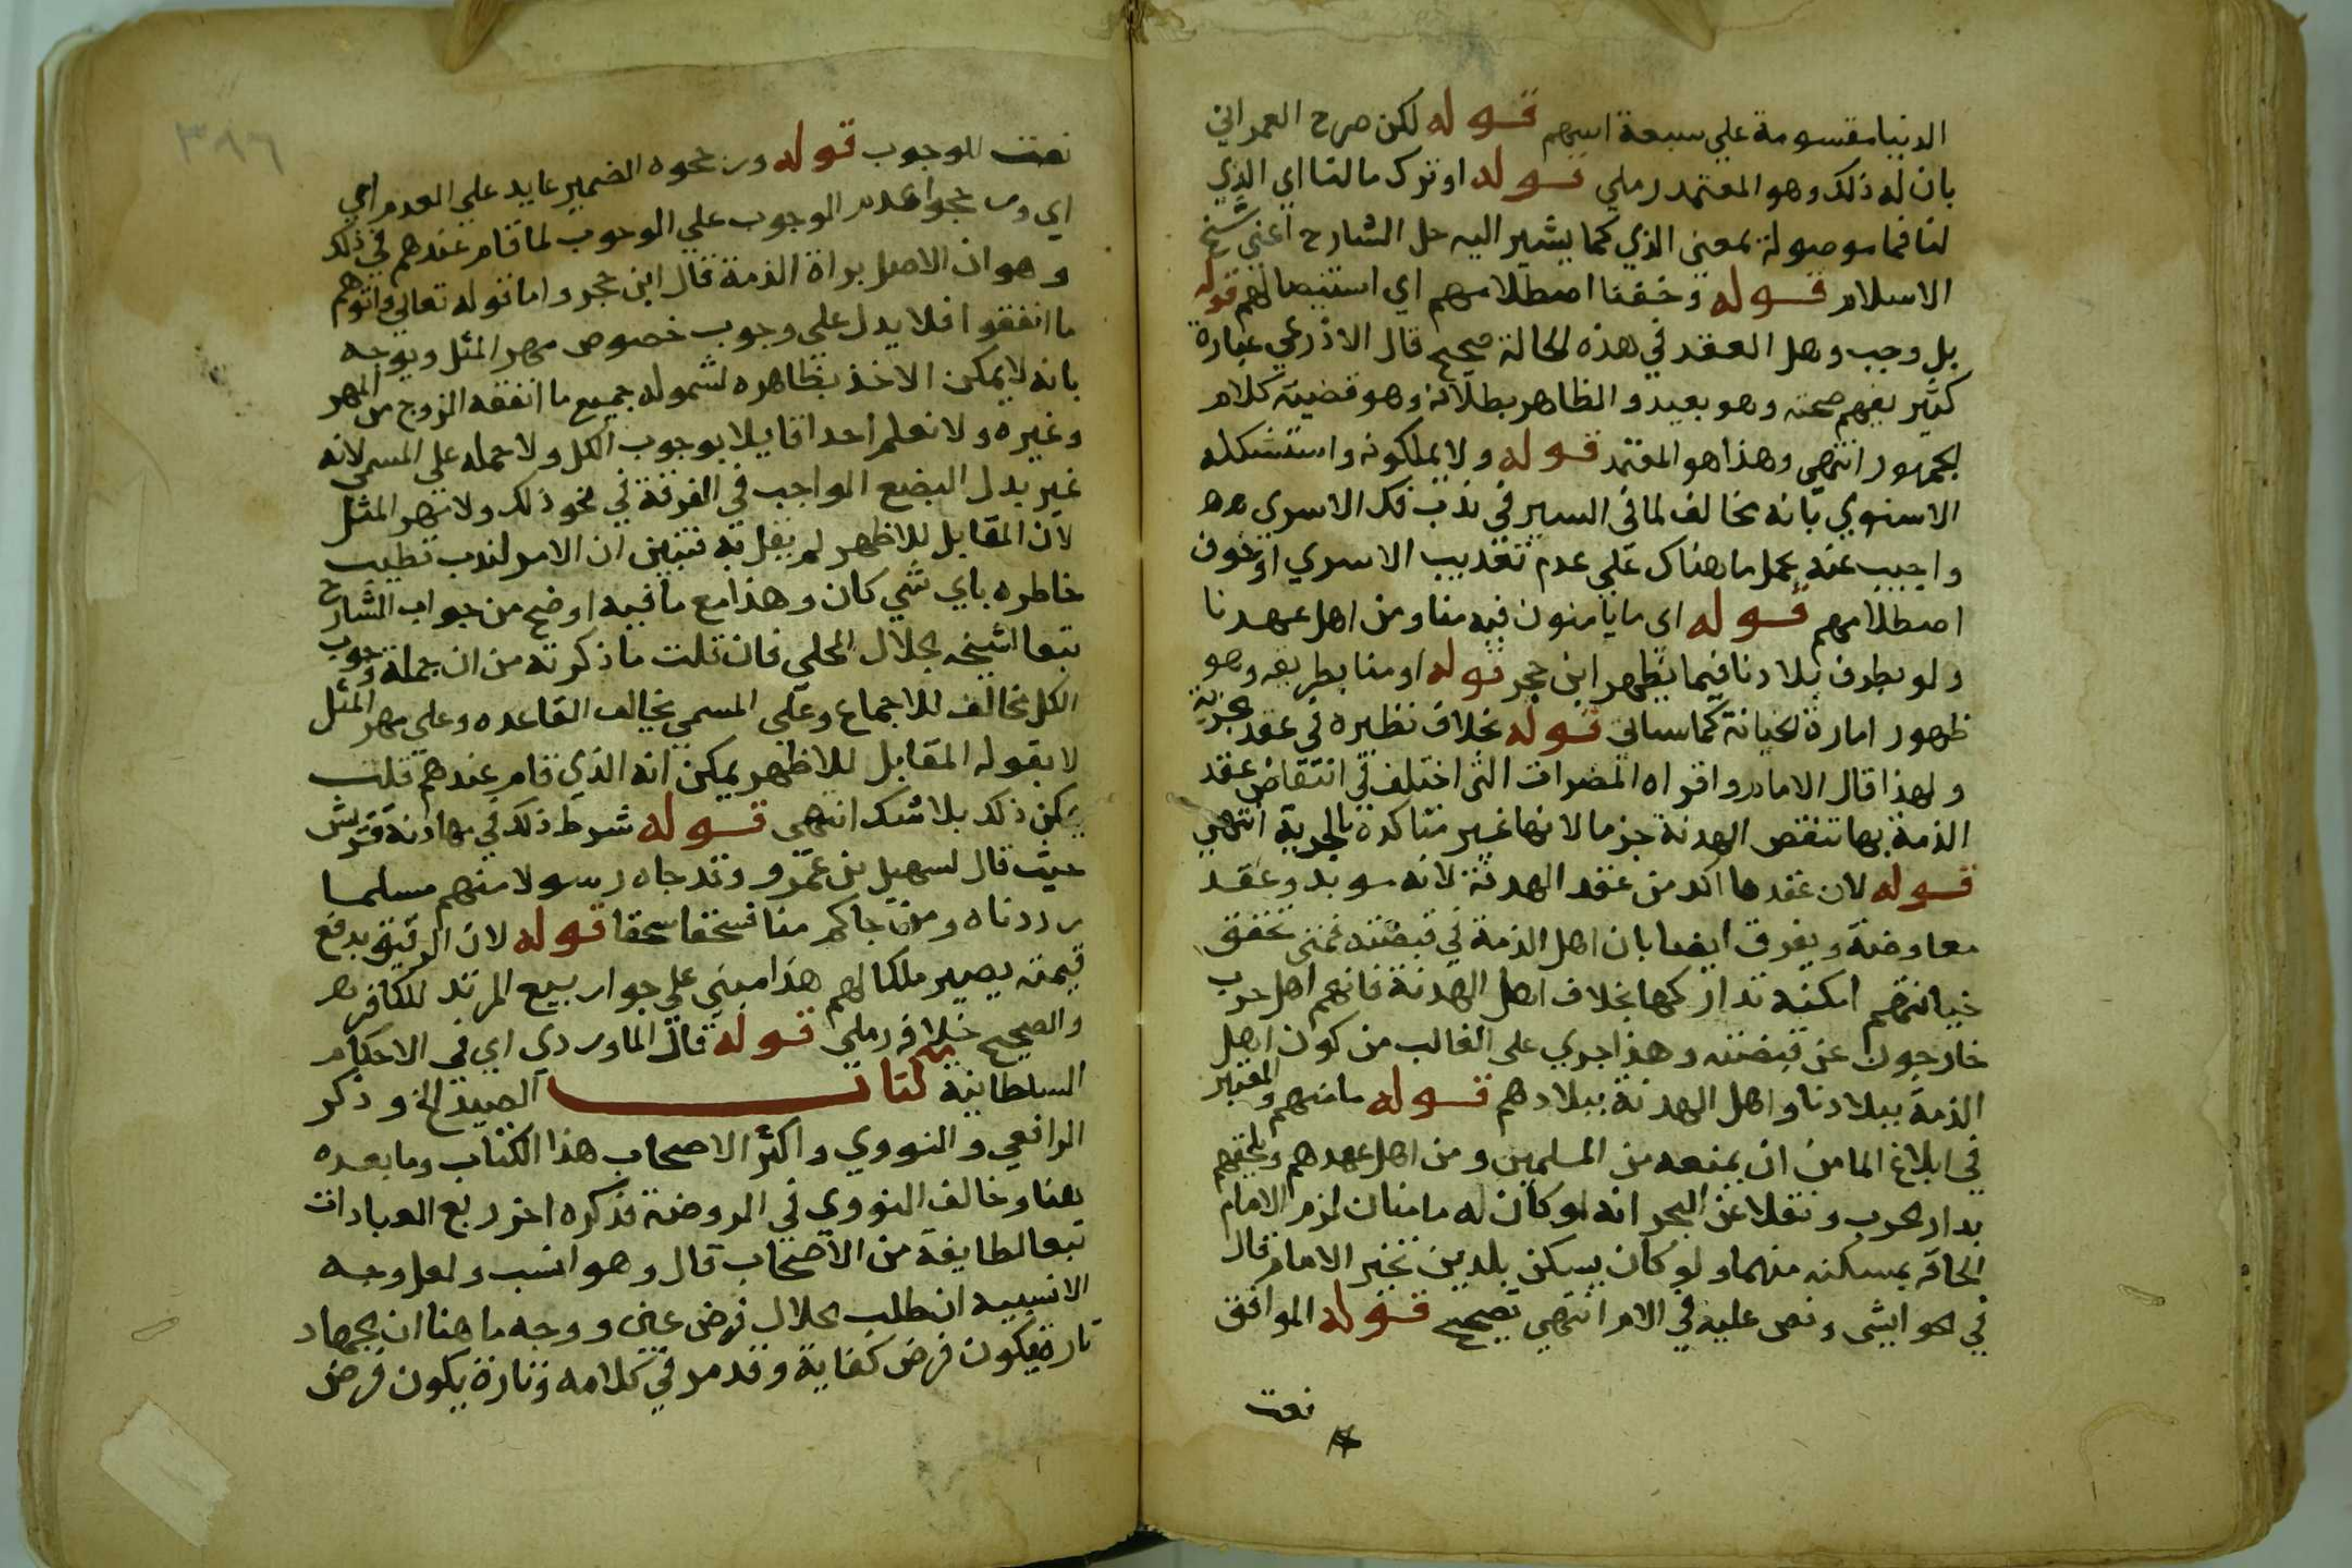 الدنيا مقسومة علي سبعة اسهم قوله لكن صرح العمراني
بان له ذلك وهو المعتمد رملي قوله او ترك مالنا اي الذي
لنا فما موصولة بمعني الذي كما يشير اليه حل الشارح اعني شيخ
الاسلام قوله وخفنا اصطلامهم اي استيصالهم قوله
بل وجب وهل العقد في هذه الحالة صحيح قال الاذرعي عبارة
كثير يفهم صحته وهو بعيد والظاهر بطلانه وهو قضية كلام
الجمهور انتهي وهذا هو المعتمد قوله ولا يملكونه واستشكله
الاسنوي بانه مخالف لما في السير في ندب فك الاسري
واجيب عنه بحمل ما هناك علي عدم تعذيب الاسري او خوف
اصطلامهم قوله اي ما يامنون فيه منا ومن اهل عهدنا
ولو بطرف بلادنا فيما يظهر ابن حجر قوله او منا بطريقه وهو
ظهور امارة الخيانة كما سياتي قوله بخلاف نظيره في عقد الجزية
ولهذا قال الامام واقراه المضرات التي اختلف في انتقاض عقد
الذمة بها تنقض الهدنة جزما لانها غير متاكدة بالجزية انتهي
قوله لان عقدها اكد من عقد الهدنة لانه موبد وعقد
معاوضة ويفرق ايضا بان اهل الذمة في قبضته فمتي تحقق
خيانتهم امكنه تداركها بخلاف اهل الهدنة فانهم اهل حرب
خارجون عن قبضته وهذا جري علي الغالب من كون اهل
الذمة ببلادنا واهل الهدنة ببلادهم قوله مامنهم والمعتبر
في ابلاغ المامن ان يمنعه من المسلمين ومن اهل عهدهم ويلحقهم
بدار الحرب ونقلا عن البحر انه لو كان له مامنان لزم الامام
الحاقه بمسكنه منهما ولو كان يسكن بلدين تخير الامام قال
في الحواشي ونص عليه في الام انتهي تصحيح قوله الموافق
نعت
٣٨٦
نعت للوجوب قوله ورجحوه الضمير عايد علي العدم اي
اي ورجحوا عدم الوجوب علي الوجوب لما قام عندهم في ذلك
وهو ان الاصل براة الذمة قال ابن حجر واما قوله تعالي واتوهم
ما انفقوا فلا يدل علي وجوب خصوص مهر المثل ويوجه
بانه لا يمكن الاخذ بظاهره لشموله جميع ما انفقه الزوج من المهر
وغيره ولا نعلم احدا قايلا بوجوب الكل ولا حمله علي المسمي لانه
غير بدل البضع الواجب في الفرقة في نحو ذلك ولا مهر المثل
لان المقابل للاظهر لم يقل به فتبين ان الامر لندب تطييب
خاطره باي شي كان وهذا مع ما فيه اوضح من جواب الشارح
تبعا لشيخه الجلال المحلي فان قلت ما ذكرته من ان حمله وجوب
الكل مخالف للاجماع وعلي المسمي يخالف القاعده وعلي مهر المثل
لا يقوله المقابل للاظهر يمكن انه الذي قام عندهم قلت
يمكن ذلك بلا شك انتهي قوله شرط ذلك في مهادنة قريش
حيث قال لسهيل بن عمرو وقد جاه رسولا منهم مسلما
رددناه ومن جاكم منا فسحقا سحقا قوله لان الرقيق بدفع
قيمته يصير ملكا لهم هذا مبني علي جواز بيع المرتد للكافر
والصحيح خلافه رملي قوله قال الماوردي اي في الاحكام
السلطانية كتاب الصيد الخ وذكر
الرافعي والنووي واكثر الاصحاب هذا الكتاب وما بعده
هنا وخالف النووي في الروضة فذكره اخر ربع العبادات
تبعا لطايفة من الاصحاب قال وهو انسب ولعل وجه
الانسبية ان طلب الحلال فرض عين ووجه ما هنا ان الجهاد
تارة يكون فرض كفاية وقد مر في كلامه وتارة يكون فرض